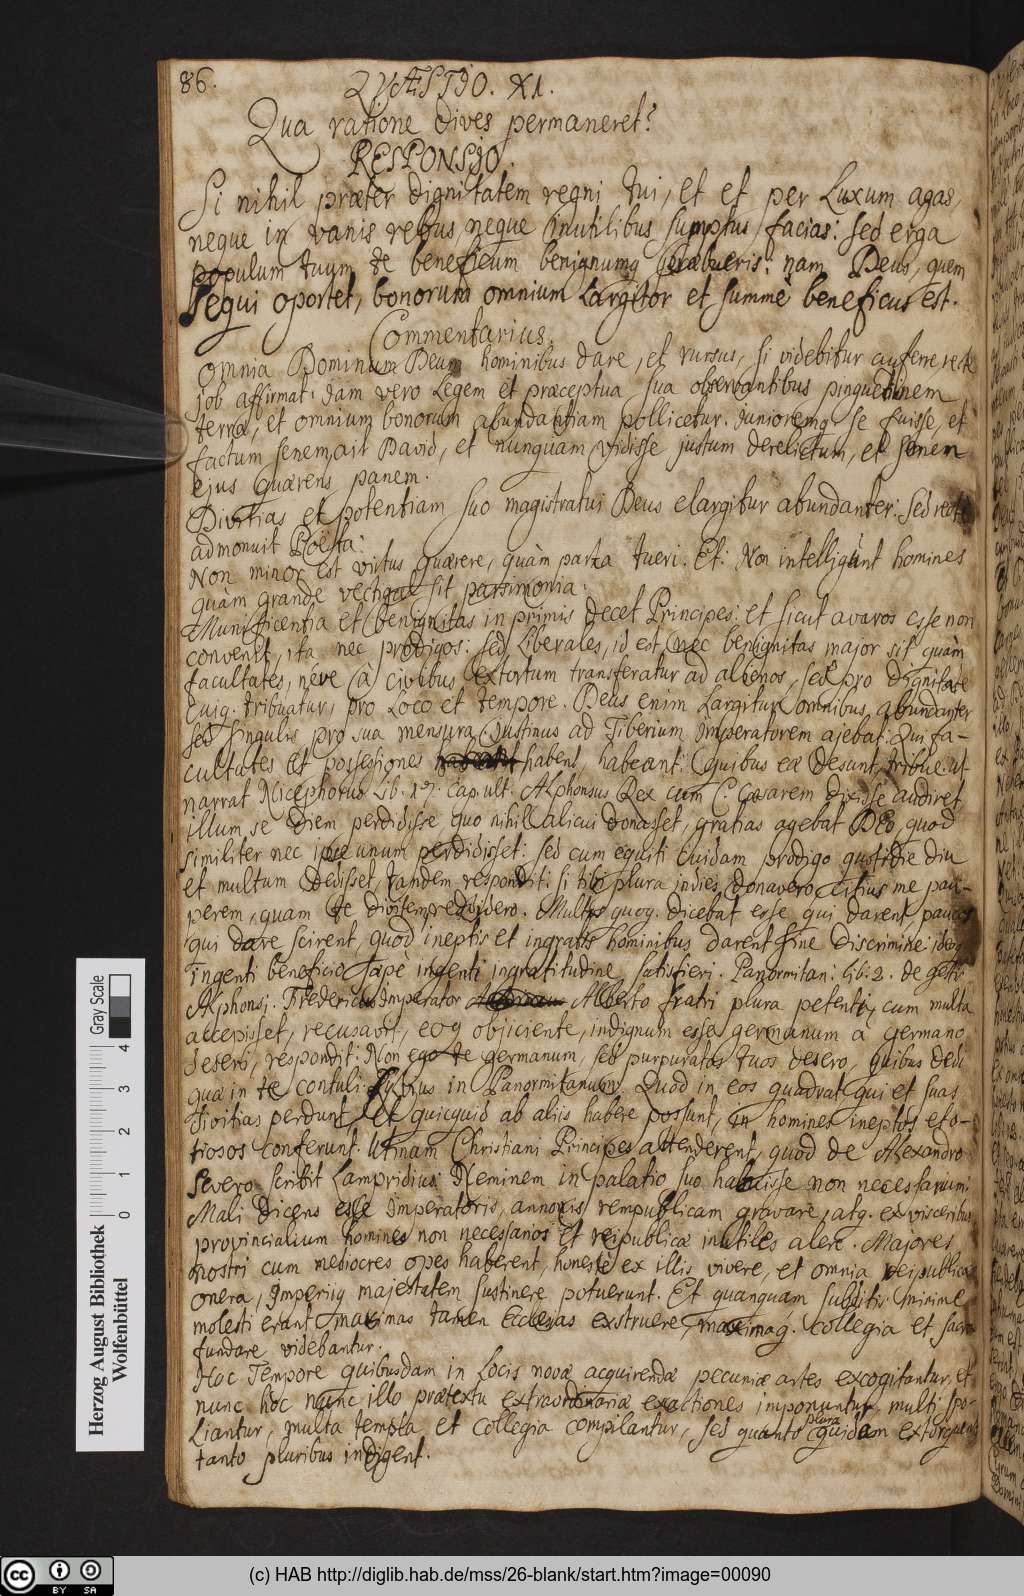 86.
QVÆSTIO. XI.
Qua ratione dives permaneret?
RESPONSIO.
Si nihil præter dignitatem regni tui, et et per Luxum agas,
neque in vanis rebus, neque inutilibus sumptus facias: sed erga
populum tuum te beneficum benignumq præbueris: nam Deus, quem
sequi oportet, bonorum omnium Largitor et summè beneficus est.
Commentarius.
Omnia Dominum Deum hominibus dare, et rursus, si videbitur auferre recte
job affirmat. Jam vero Legem et præceptua sua observantibus pinguedinem
terræ, et omnium bonorum abundantiam pollicetur. Junioremq se fuisse, et
factum senem, ait David, et nunquam vidisse justum derelictum, et semen
ejus quærens panem.
Divitias et potentiam suo magistratui Deus elargitur abundanter: Sed recte
admonuit Poëta:
Non minor est virtus quærere, quàm parta tueri. Et: Non intelligunt homines
quàm grande vectigal sit parsimonia.
Munificentia et benignitas in primis decet Principes: et sicut avaros esse non
convenit, ita nec prodigos: sed Liberales, id est, nec benignitas major sit quàm
facultates, néve à civibus extortum transferatur ad alienos, sed pro dignitate
cuiq. tribuatur, pro Loco et tempore. Deus enim Largitur omnibus abundanter
sed singulis pro sua mensura. Justinus ad Tiberium Imperatorem ajebat: Qui fa-
cultates et possessiones habent, habeant: quibus eæ desunt, tribue. ut
narrat Nicephorus Lib. 17. cap. ult. Alphonsus Rex cum C. Cæsarem dixisse audiret
illum se diem perdidisse, quo nihil alicui donasset, gratias agebat DEO, quod
similiter nec ipse unum perdidisset: sed cum equiti cuidam prodigo quotidie diu
et multum dedisset, tandem respondit: si tibi plura indies donavero citius me pau-
perem, quam te divitem reddidero. Multos quoq. dicebat esse qui darent, paucos
qui dare scirent, quod ineptis et ingratis hominibus darent sine discrimine: ideoq.
ingenti beneficio sæpè ingenti ingratitudine satisfieri. Panormitan: lib: 2. de gestis
Alphonsi. Fredericus Imperator Alberto fratri plura petenti, cum multa
accepisset, recusavit, eoq objiciente, indignum esse germanum a germano
deseri, respondit: Non ego te germanum, sed purpuratos tuos desero, quibus dedi
quæ in te contuli: in Panormitanum. Quod in eos quadrat qui et suas
divitias perdunt, et quicquid ab aliis habere possunt, in homines ineptos et o-
tiosos conferunt. Utinam Christiani Principes attenderent, quod de Alexandro
Severo scribit Lampridius: Neminem in palatio suo habuisse non necessarium:
Mali dicens esse Imperatoris, annonis rempublicam gravare, atq. ex visceribus
provincialium homines non necessarios et reipublicæ inutiles alere. Majores
nostri cum mediocres opes haberent, honestè ex illis vivere, et omnia reipublicæ
onera, Imperiiq majestatem sustinere potuerunt. Et quanquam subditis minime
molesti erant, maximas tamen Ecclesias exstruere, maximaq. collegia et sacra
fundare videbantur.
Hoc Tempore quibusdam in Locis novæ acquirendæ pecuniæ artes excogitantur, et
nunc hoc nunc illo prætextu extraordinariæ exactiones imponuntur, multi spo-
liantur, multa templa et collegia compilantur, sed quanto plura quidem extorquent
tanto pluribus indigent.
Herzog August Bibliothek
Wolfenbüttel
0 1 2 3 4
Gray Scale
cc BY SA
(c) HAB http://diglib.hab.de/mss/26-blank/start.htm?image=00090